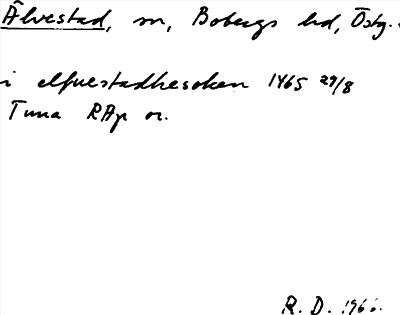 Älvestad, sn, Bobergs hd, Östg.
i elfuestadhesoken 1465 29/8
Tuna RAp or.
R. D. 196